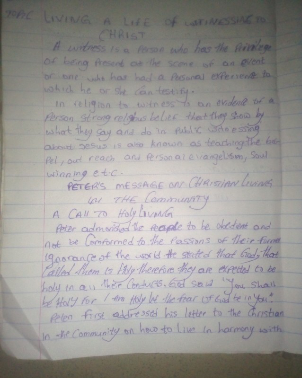 TOPIC LIVING A LIFE OF WITNESSING TO
CHRIST
A witness is a person who has the privilege
of being present on the scene of an event
or one who has had a personal experience to
which he or she can testify.
In religion to witness is an evidence of a
person strong religious belief that they show by
what they say and do in public witnessing
about Jesus is also known as teaching the
out reach and Personal evangelism, Soul
winning e.t.c.
PETER'S MESSAGE ON CHRISTIAN LIVING
IN THE COMMUNITY
A CALL TO HOLY LIVING
Peter admonished the people to be obedient and
not be conformed to the passions of their former
ignorance of the world He stated that God that
called them is Holy therefore they are expected to be
holy in all their conduct. God said "you shall
be Holy for I am Holy let the fear of God be in you"
Peter first addressed his letter to the Christian
in the Community on how to live in harmony with